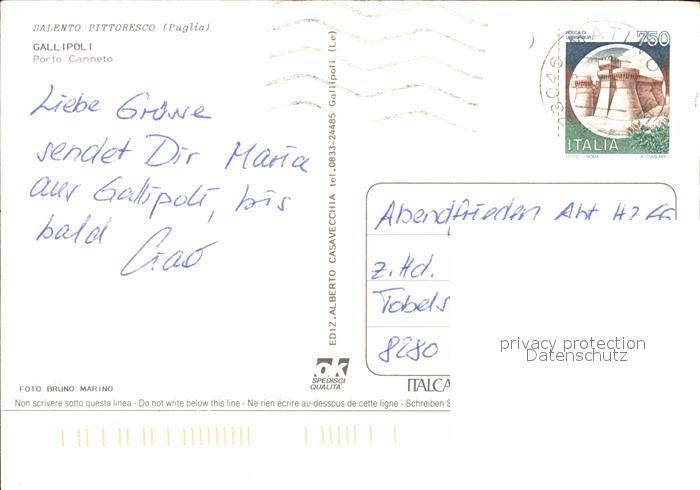 SALENTO PITTORESCO (Puglia)
GALLIPOLI
Porto Canneto
Liebe Grüsse
sendet Dir Maria
aus Gallipoli, bis
bald
Ciao
FOTO BRUNO MARINO
EDIZ. ALBERTO CASAVECCHIA tel. 0833-24485 Gallipoli (Le)
ok
SPEDISCI
QUALITÀ
ROCCA DI
URBISAGLIA
750
ITALIA
I.P.Z.S. ROMA
Abendfrieden Abt
z.Hd.
Tobels
8280
privacy protection
Datenschutz
ITALCA
Non scrivere sotto questa linea - Do not write below this line - Ne rien écrire au-dessous de cette ligne - Schreiben S